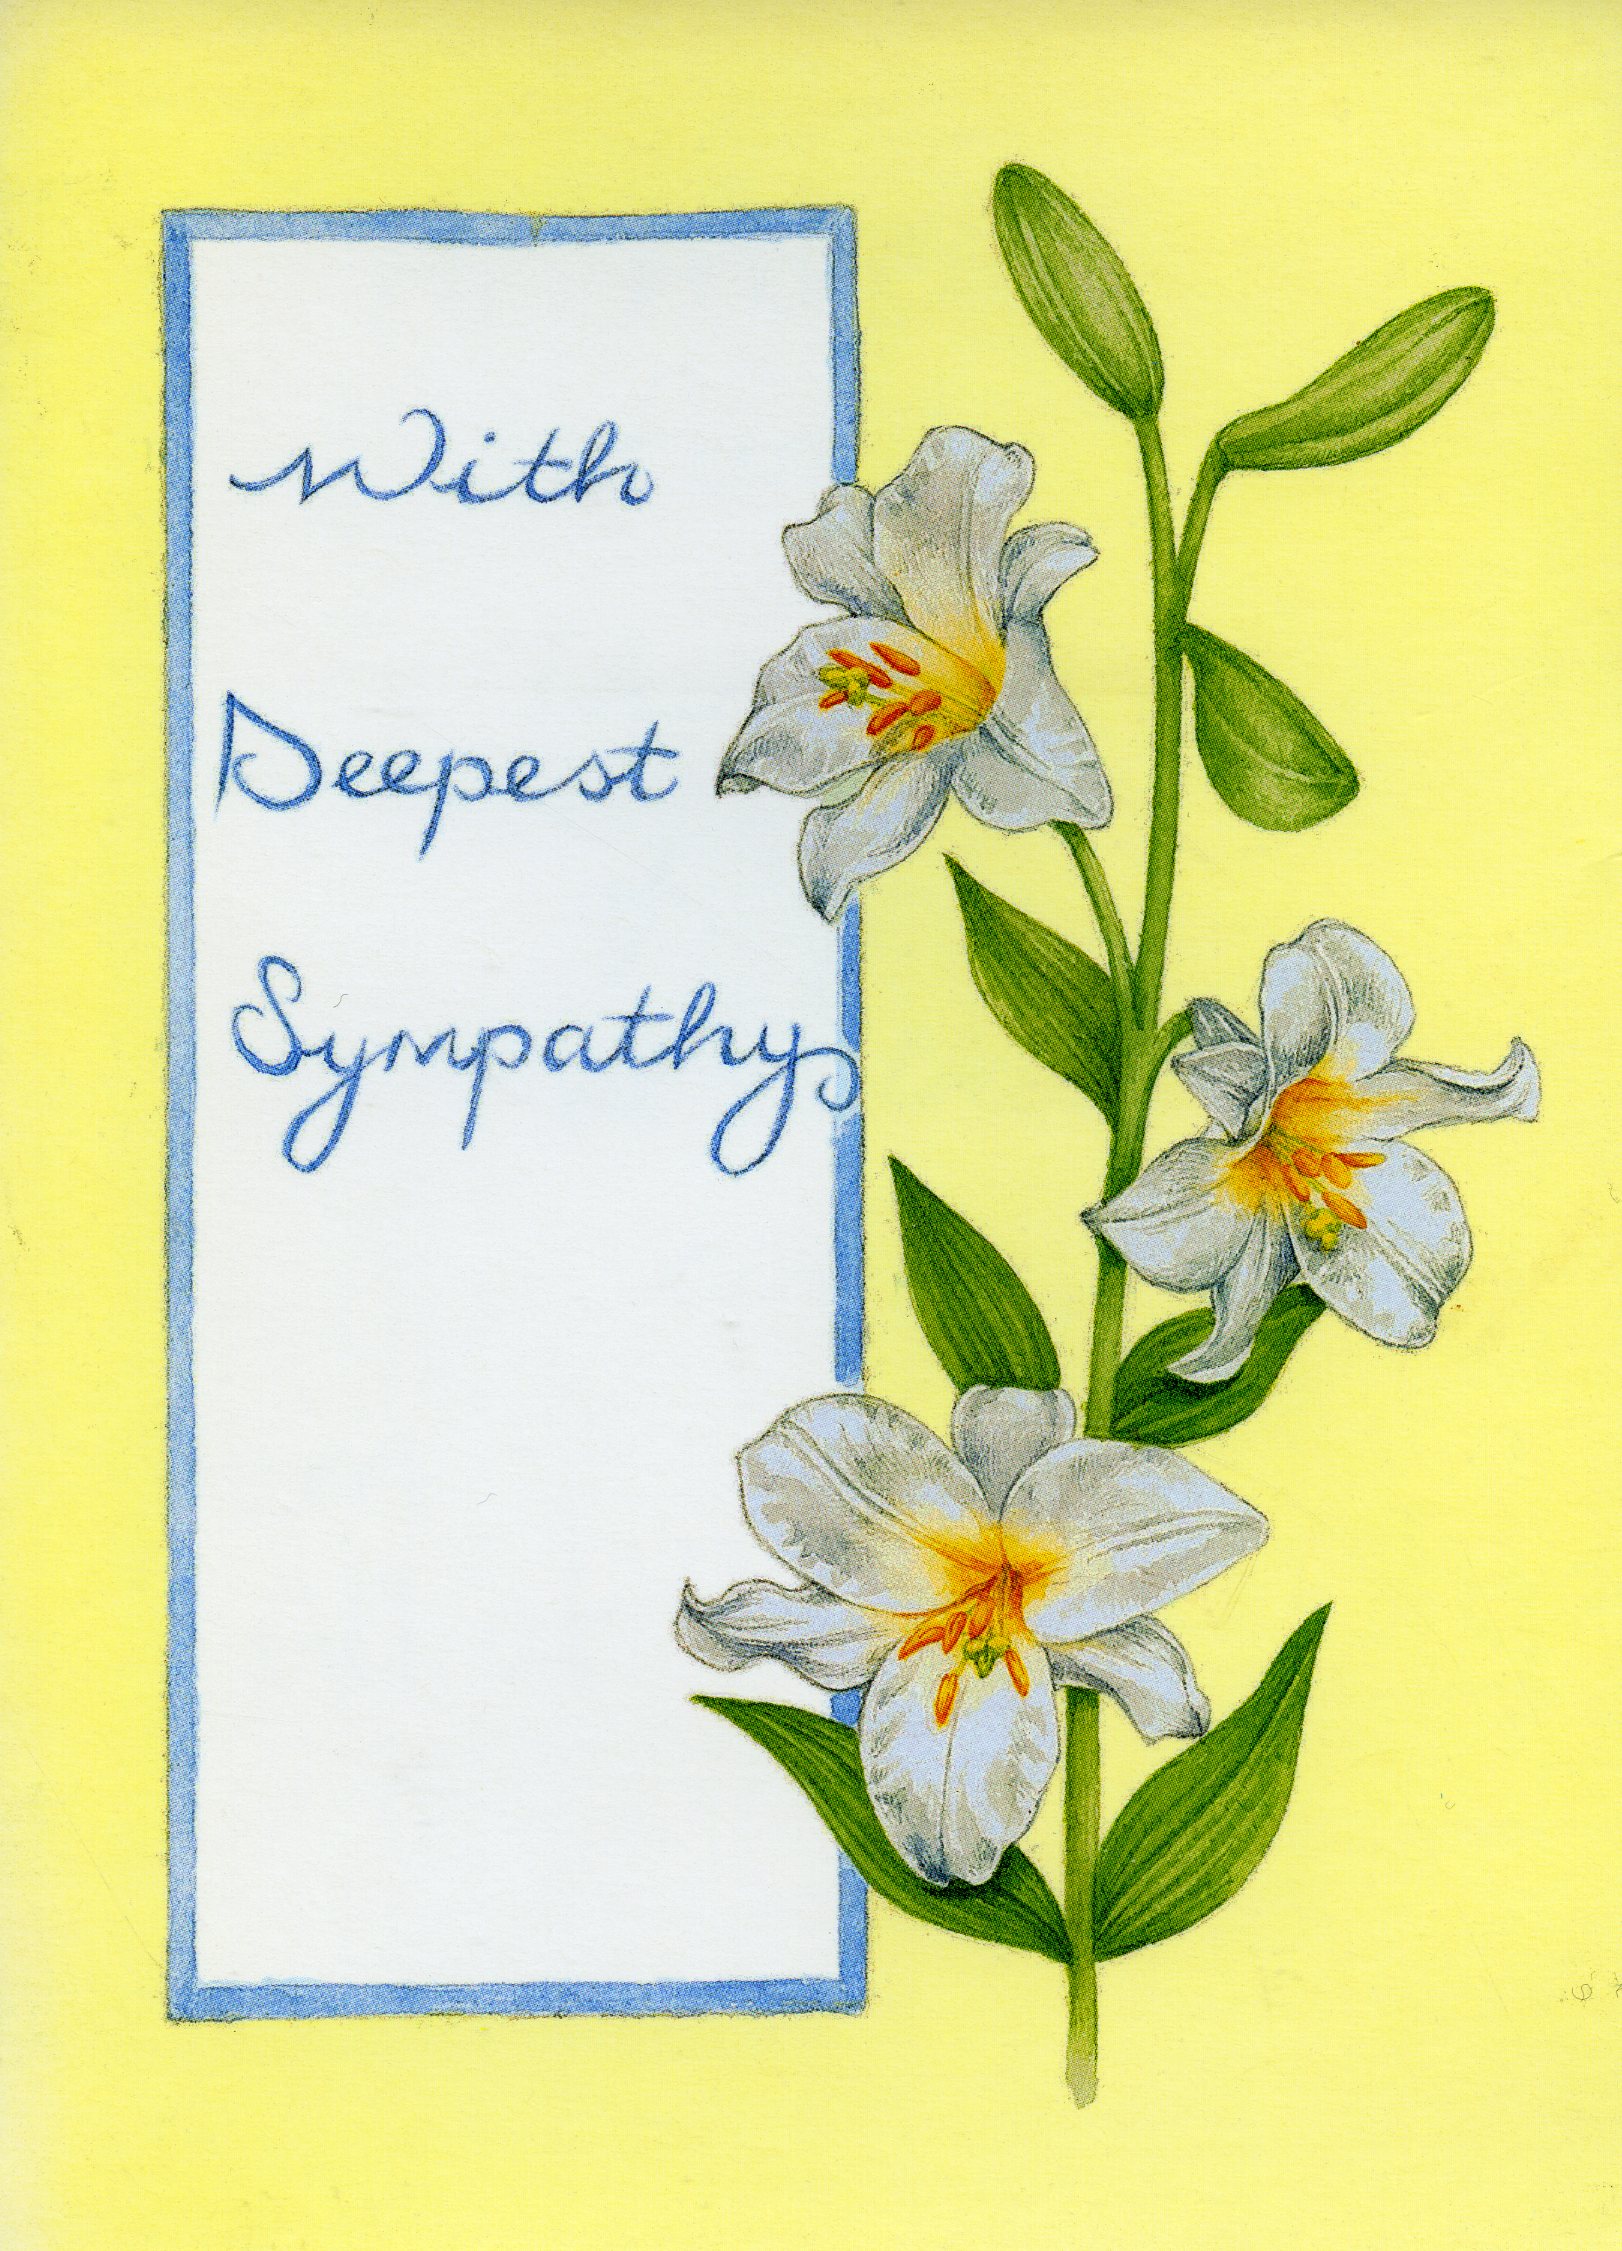 With
Deepest
Sympathy